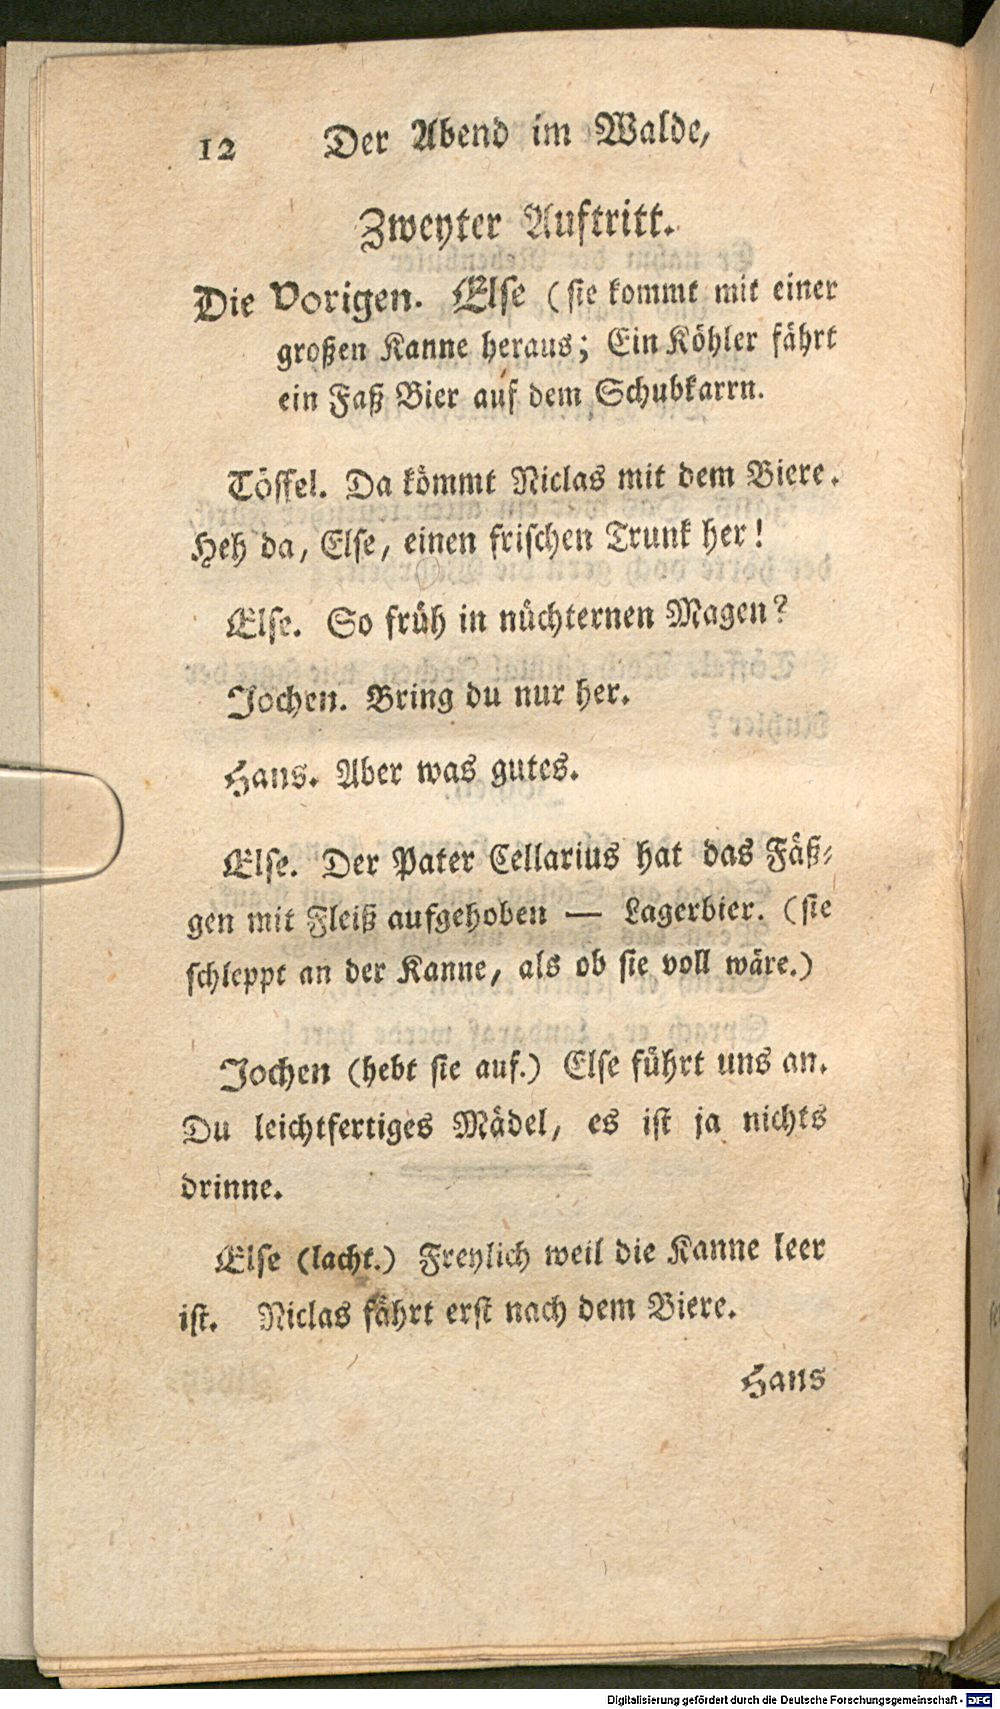 12 Der Abend im Walde,
Zweyter Auftritt.
Die Vorigen. Else (sie kommt mit einer
großen Kanne heraus; Ein Köhler fährt
ein Faß Bier auf dem Schubkarrn.
Töffel. Da kömmt Niclas mit dem Biere.
Heh da, Else, einen frischen Trunk her!
Else. So früh in nüchternen Magen?
Jochen. Bring du nur her.
Hans. Aber was gutes.
Else. Der Pater Cellarius hat das Fäß-
gen mit Fleiß aufgehoben — Lagerbier. (sie
schleppt an der Kanne, als ob sie voll wäre.)
Jochen (hebt sie auf.) Else führt uns an.
Du leichtfertiges Mädel, es ist ja nichts
drinne.
Else (lacht.) Freylich weil die Kanne leer
ist. Niclas fährt erst nach dem Biere.
Hans
Digitalisierung gefördert durch die Deutsche Forschungsgemeinschaft - DFG